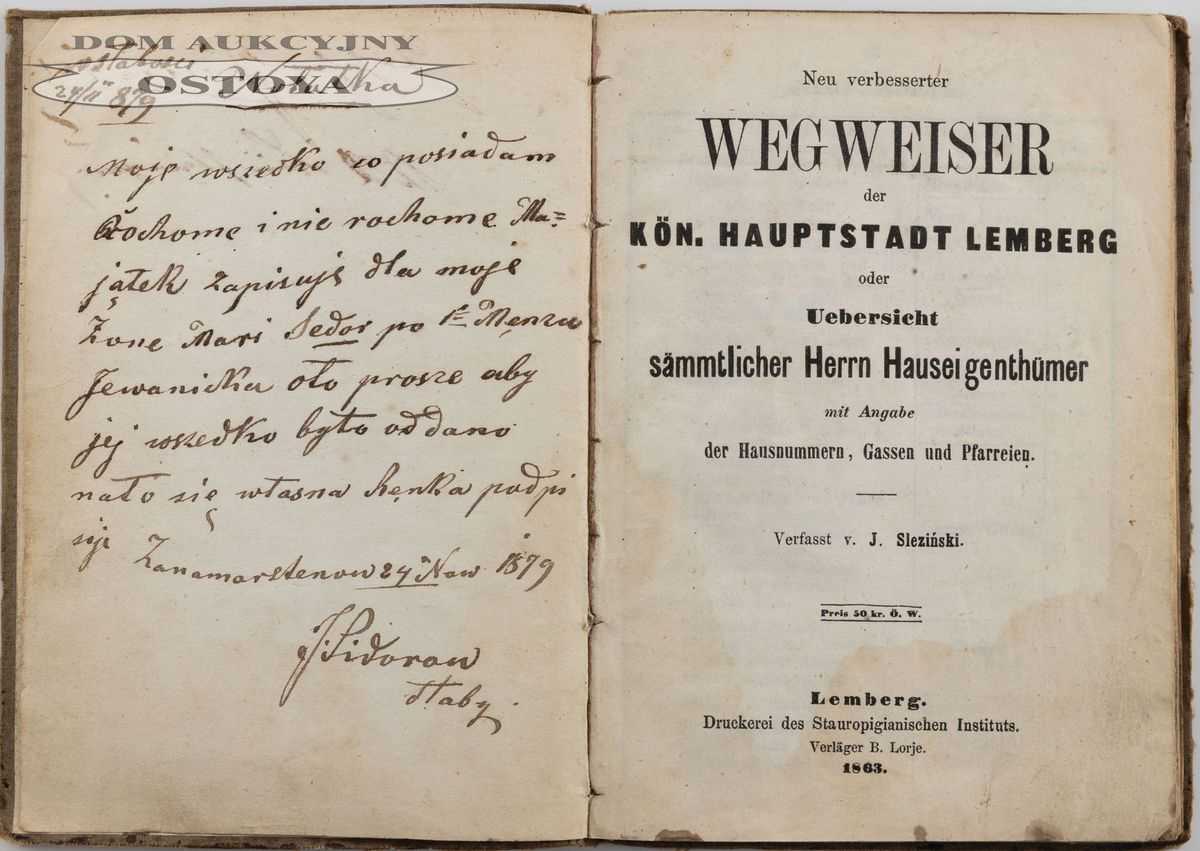 DOM AUKCYJNY
OSTOYA
Notatka
24/11 879
Moje wszedko co posiadam
Rochome i nie rochome Ma=
jątek zapisuje dla moje
Żone Mari Sedor po 1 Menżu
Jewanicka oto prosze aby
jej wszedko było oddano
nato się własna Renka podpi
suje
Zanamarstenow 24 Now 1879
J Sidoraw
słaby.
Neu verbesserter
WEGWEISER
der
KÖN. HAUPTSTADT LEMBERG
oder
Uebersicht
sämmtlicher Herrn Hauseigenthümer
mit Angabe
der Hausnummern, Gassen und Pfarreien.
Verfasst v. J. Sleziński.
Preis 50 kr. Ö. W.
Lemberg.
Druckerei des Stauropigianischen Instituts.
Verläger B. Lorje.
1863.